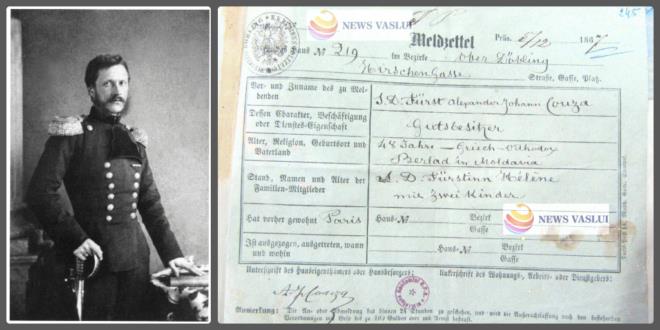 NEWS VASLUI
245
Meldzettel Präs. 5/12 1867
Haus No 219 im Bezirke Ober Döbling
Hirschen Gasse Straße, Gasse, Platz.
Vor- und Zuname des zu Meldenden
S. D. Fürst Alexander Johann Couza
Dessen Charakter, Beschäftigung oder Dienstes-Eigenschaft
Gutsbesitzer
Alter, Religion, Geburtsort und Vaterland
48 Jahre - Griech-Orthodox
Berlad in Moldavia
Stand, Namen und Alter der Familien-Mitglieder
I. D. Fürstinn Hélène
mit zwei Kinder
Hat vorher gewohnt Paris Haus-No Bezirk
Gasse
NEWS VASLUI
Ist ausgezogen, ausgetreten, wann und wohin
Haus-No Bezirk
Gasse
Unterschrift des Hauseigenthümers oder Hausbesorgers:
Unterschrift des Wohnungs-, Arbeits- oder Dienstgebers:
Anmerkung: Die An- oder Abmeldung hat binnen 24 Stunden zu geschehen, und wird die Außerachtlassung nach den bestehenden
Verordnungen mit bis zu 100 Gulden oder mit Arrest bestraft.